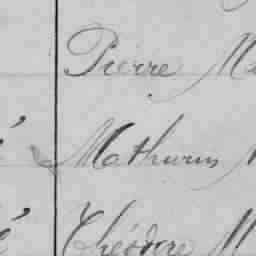 Pierre M
é Mathurin
é Théodore M